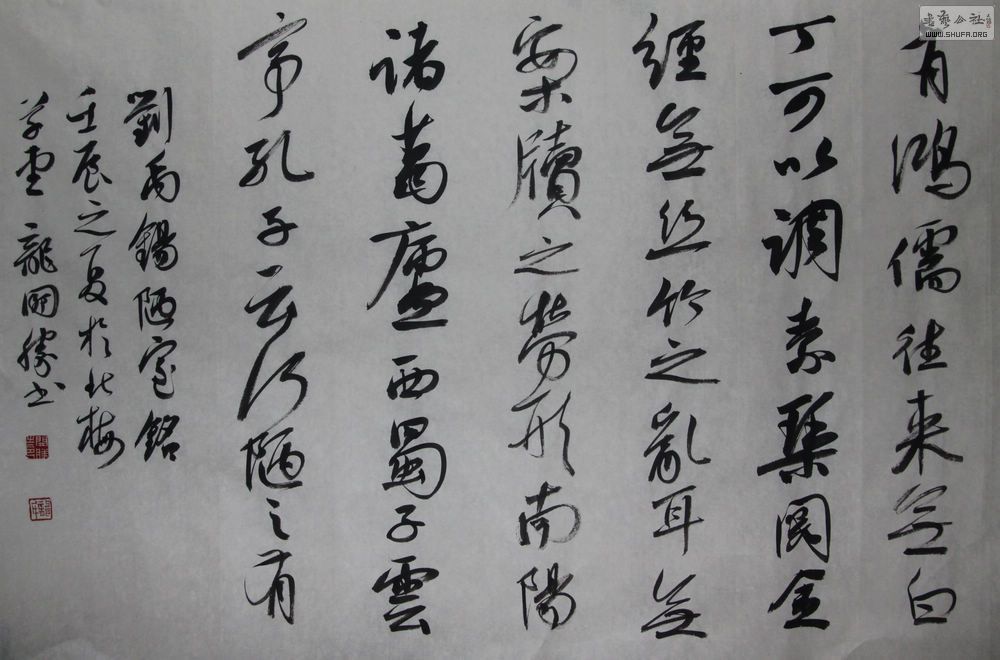 有鴻儒往来無白
丁可以調素琴閱金
經無丝竹之亂耳無
案牘之勞形南陽
諸葛廬西蜀子雲
亭孔子云何陋之有
劉禹錫陋室銘
壬辰之夏於北梅
草堂龍開勝书
書藝公社
WWW.SHUFA.ORG